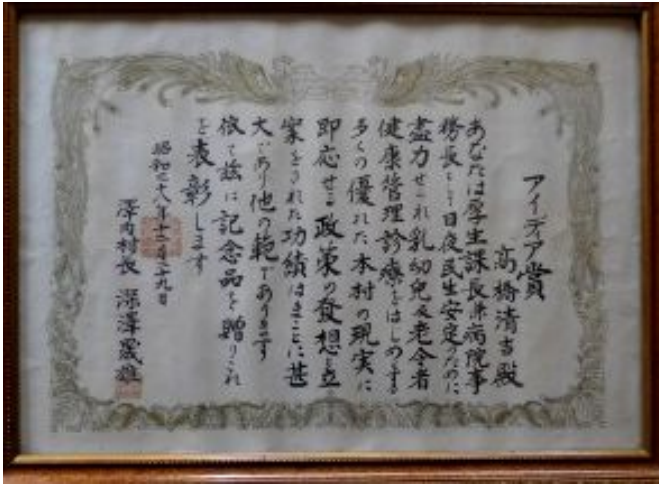 アイディア賞
高橋清吉殿
あなたは厚生課長兼病院事
務長として日夜民生安定のために
盡力せられ乳幼児及老令者
健康管理診療をはじめとする
多くの優れた本村の現実に
即応せる政策の発想と立
案をされた功績はまことに甚
大であり他の範であります
依て茲に記念品を贈りこれ
を表彰します
昭和三十八年十二月二十九日
澤内村長 深澤晟雄